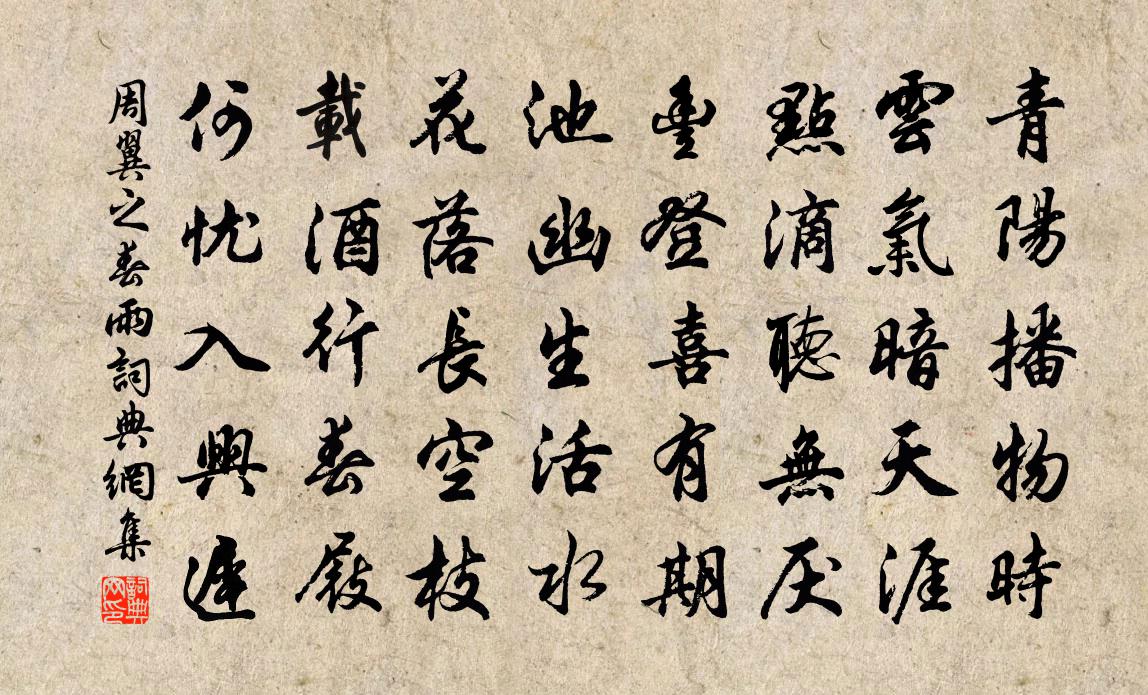 青陽播物時
雲氣暗天涯
點滴聽無厌
豊登喜有期
池幽生活水
花落長空枝
載酒行春屐
何忧入興遲
周翼之春雨詞典網集
詞典網印